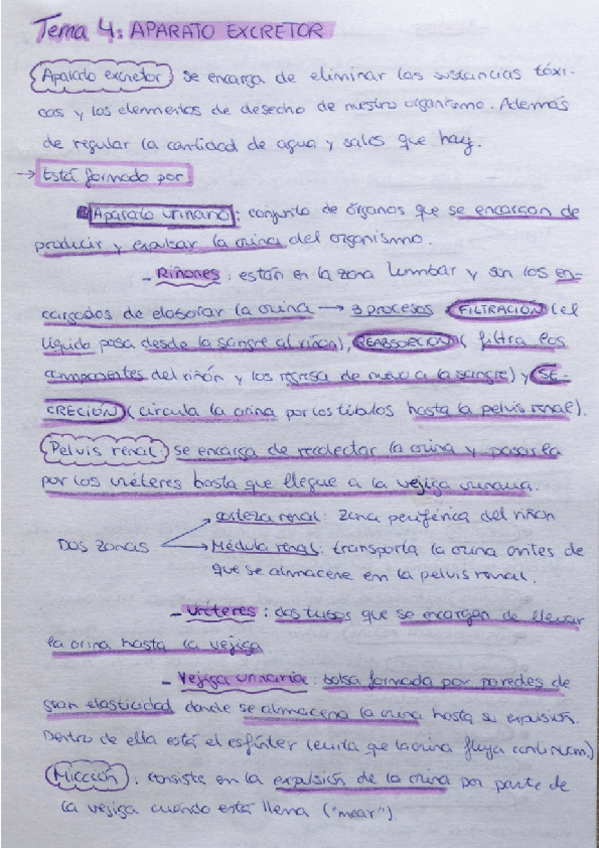 Tema 4: APARATO EXCRETOR
Aparato excretor se encarga de eliminar las sustancias tóxi-
cas y los elementos de desecho de nuestro organismo. Además
de regular la cantidad de agua y sales que hay.
→ Está formado por
Aparato urinario: conjunto de órganos que se encargan de
producir y expulsar la orina del organismo.
- Riñones: están en la zona lumbar y son los en-
cargados de elaborar la orina → 3 procesos FILTRACIÓN (el
líquido pasa desde la sangre al riñón), REABSORCIÓN ( filtra los
componentes del riñón y los regresa de nuevo a la sangre) y SE-
CRECIÓN (circula la orina por los túbulos hasta la pelvis renal).
Pelvis renal: se encarga de recolectar la orina y pasarla
por los uréteres hasta que llegue a la vejiga urinaria.
corteza renal: zona periférica del riñón
Dos zonas
Médula renal: transporta la orina antes de
que se almacene en la pelvis renal.
- Uréteres: dos tubos que se encargan de llevar
la orina hasta la vejiga
- Vejiga urinaria: bolsa formada por paredes de
gran elasticidad donde se almacena la orina hasta su expulsión.
Dentro de ella está el esfínter (evita que la orina fluya continuam.)
Micción: consiste en la expulsión de la orina por parte de
la vejiga cuando está llena ("mear")